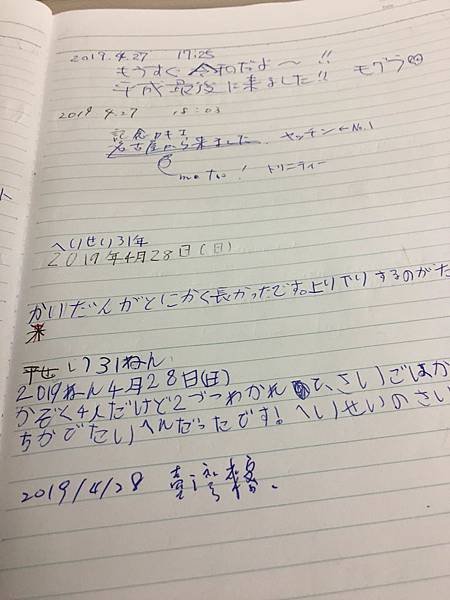 2019.4.27 17:25
もうすぐ令和だよ〜!!
平成最後に来ました!! モグラ
2019 4.27 18:03
記念カキコ
名古屋から来ました ヤッチン ← No.1
me too! トリニティー
へいせい31年
2019年4月28日(日)
かいだんがとにかく長かったです。上り下りするのがた
平せい31ねん
2019ねん4月28日(日)
かぞく4人だけど2づつわかれて、さいごはか
ちかでたいへんだったです!へいせいのさい
2019/4/28